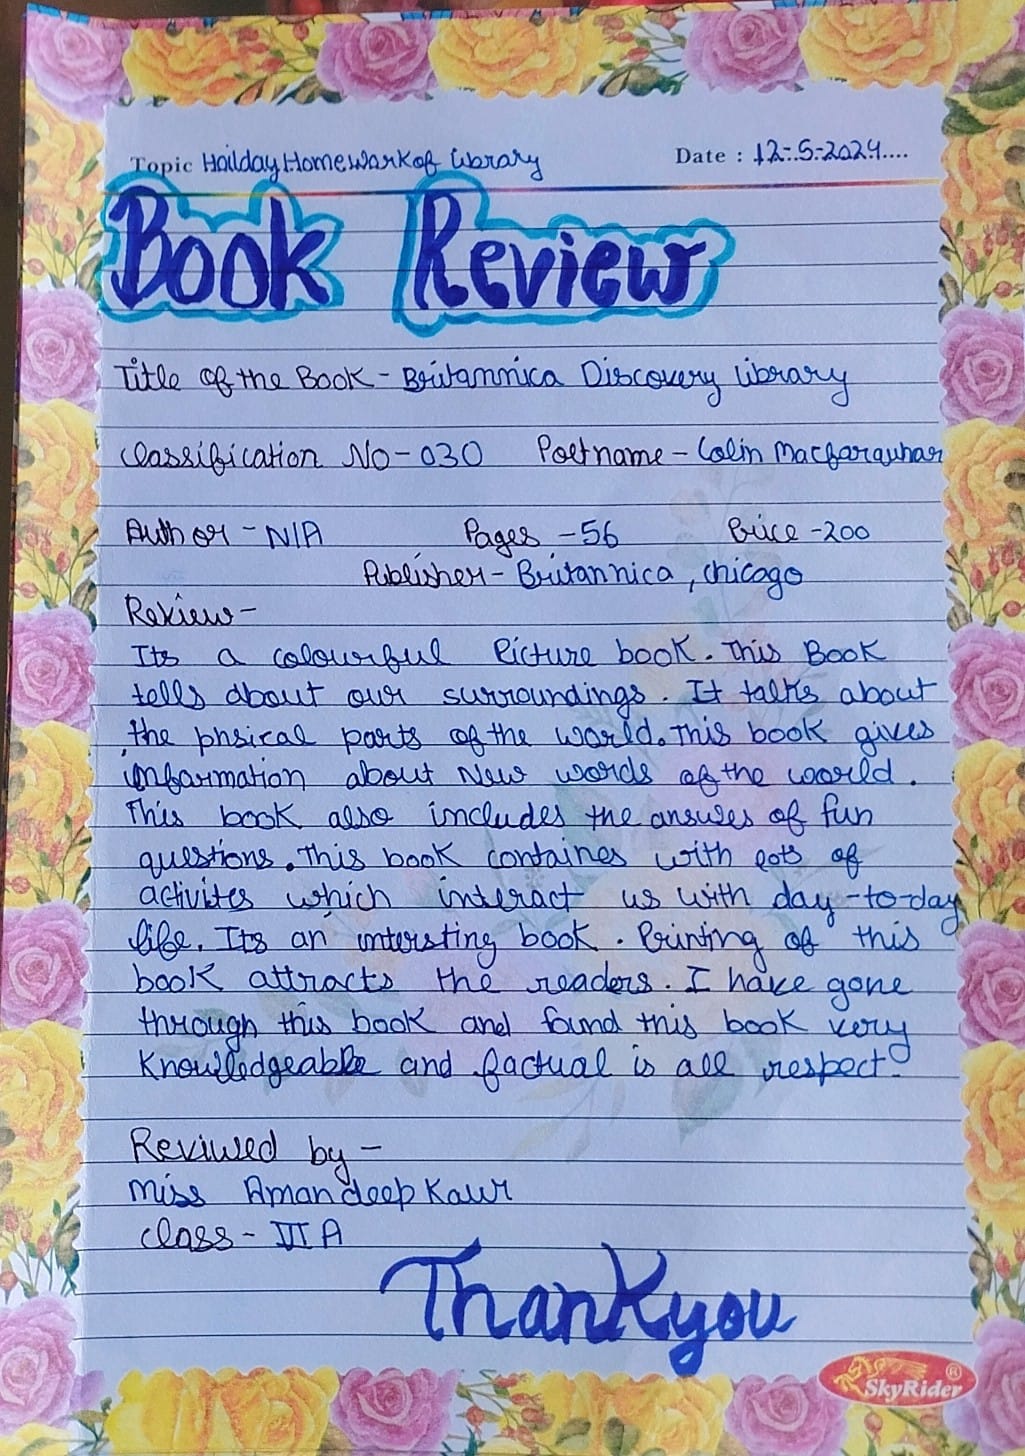 Topic Hoilday Home Work of library
Date : 12-5-2024....
Book Review
Title of the Book - Britannica Discovery library
Classification No - 030 Poetname - Colin Macfarquhar
Author - N/A Pages - 56 Price - 200
Publisher - Britannica, chicago
Review -
Its a colourful Picture book. This Book
tells about our surroundings. It talks about
the phsical parts of the world. This book gives
information about New words of the world.
This book also includes the answes of fun
questions. This book containes with lots of
activites which interact us with day-to-day
life. Its an intersting book. Printing of this
book attracts the readers. I have gone
through this book and found this book very
knowledgeable and factual is all respect.
Reviwed by -
Miss Amandeep Kaur
Class - III A
Thank you
SkyRider ®